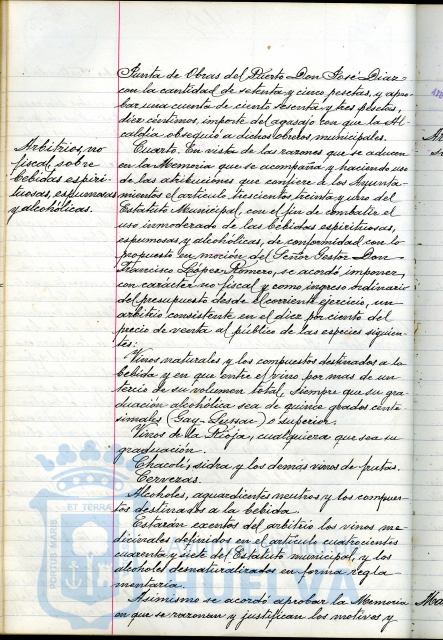 Junta de Obras del Puerto Don José Diaz
con la cantidad de setenta y cinco pesetas, y apro-
bar una cuenta de ciento sesenta y tres pesetas,
diez céntimos, importe del agasajo con que la Al-
caldia obsequió a dichos obreros municipales.
Arbitrios, no
fiscal, sobre
bebidas espiri-
tuosas, espumosas
y alcohólicas.
Cuarto. En vista de las razones que se aducen
en la Memoria que se acompaña y haciendo uso
de las atribuciones que confiere a los Ayunta-
mientos el artículo trescientos treinta y uno del
Estatuto Municipal, con el fin de combatir el
uso inmoderado de las bebidas espirituosas,
espumosas, y alcohólicas, de conformidad con lo
propuesto en moción del Señor Gestor Don
Francisco López Romero, se acordó imponer,
con carácter no fiscal y como ingreso ordinario
del presupuesto desde el corriente ejercicio, un
arbitrio consistente en el diez por ciento del
precio de venta al público de las especies siguien-
tes:
Vinos naturales y los compuestos destinados a la
bebida y en que entre el vino por mas de un
tercio de su volumen total, siempre que su gra-
duación alcohólica sea de quince grados cente-
simales (Gay-Lussac) o superior.
Vinos de la Rioja, cualquiera que sea su
graduación.
Chacolí, sidra y los demás vinos de frutas.
Cervezas.
Alcoholes, aguardientes neutros y los compues-
tos destinados a la bebida.
Estarán exentos del arbitrio los vinos me-
dicinales definidos en el artículo cuatrocientos
cuarenta y siete del Estatuto municipal, y los
alcoholes desnaturalizados en forma regla-
mentaria.
Asimismo se acordó aprobar la Memoria
en que se razonan y justifican los motivos y
PORTUS MARIS
ET TERRAE